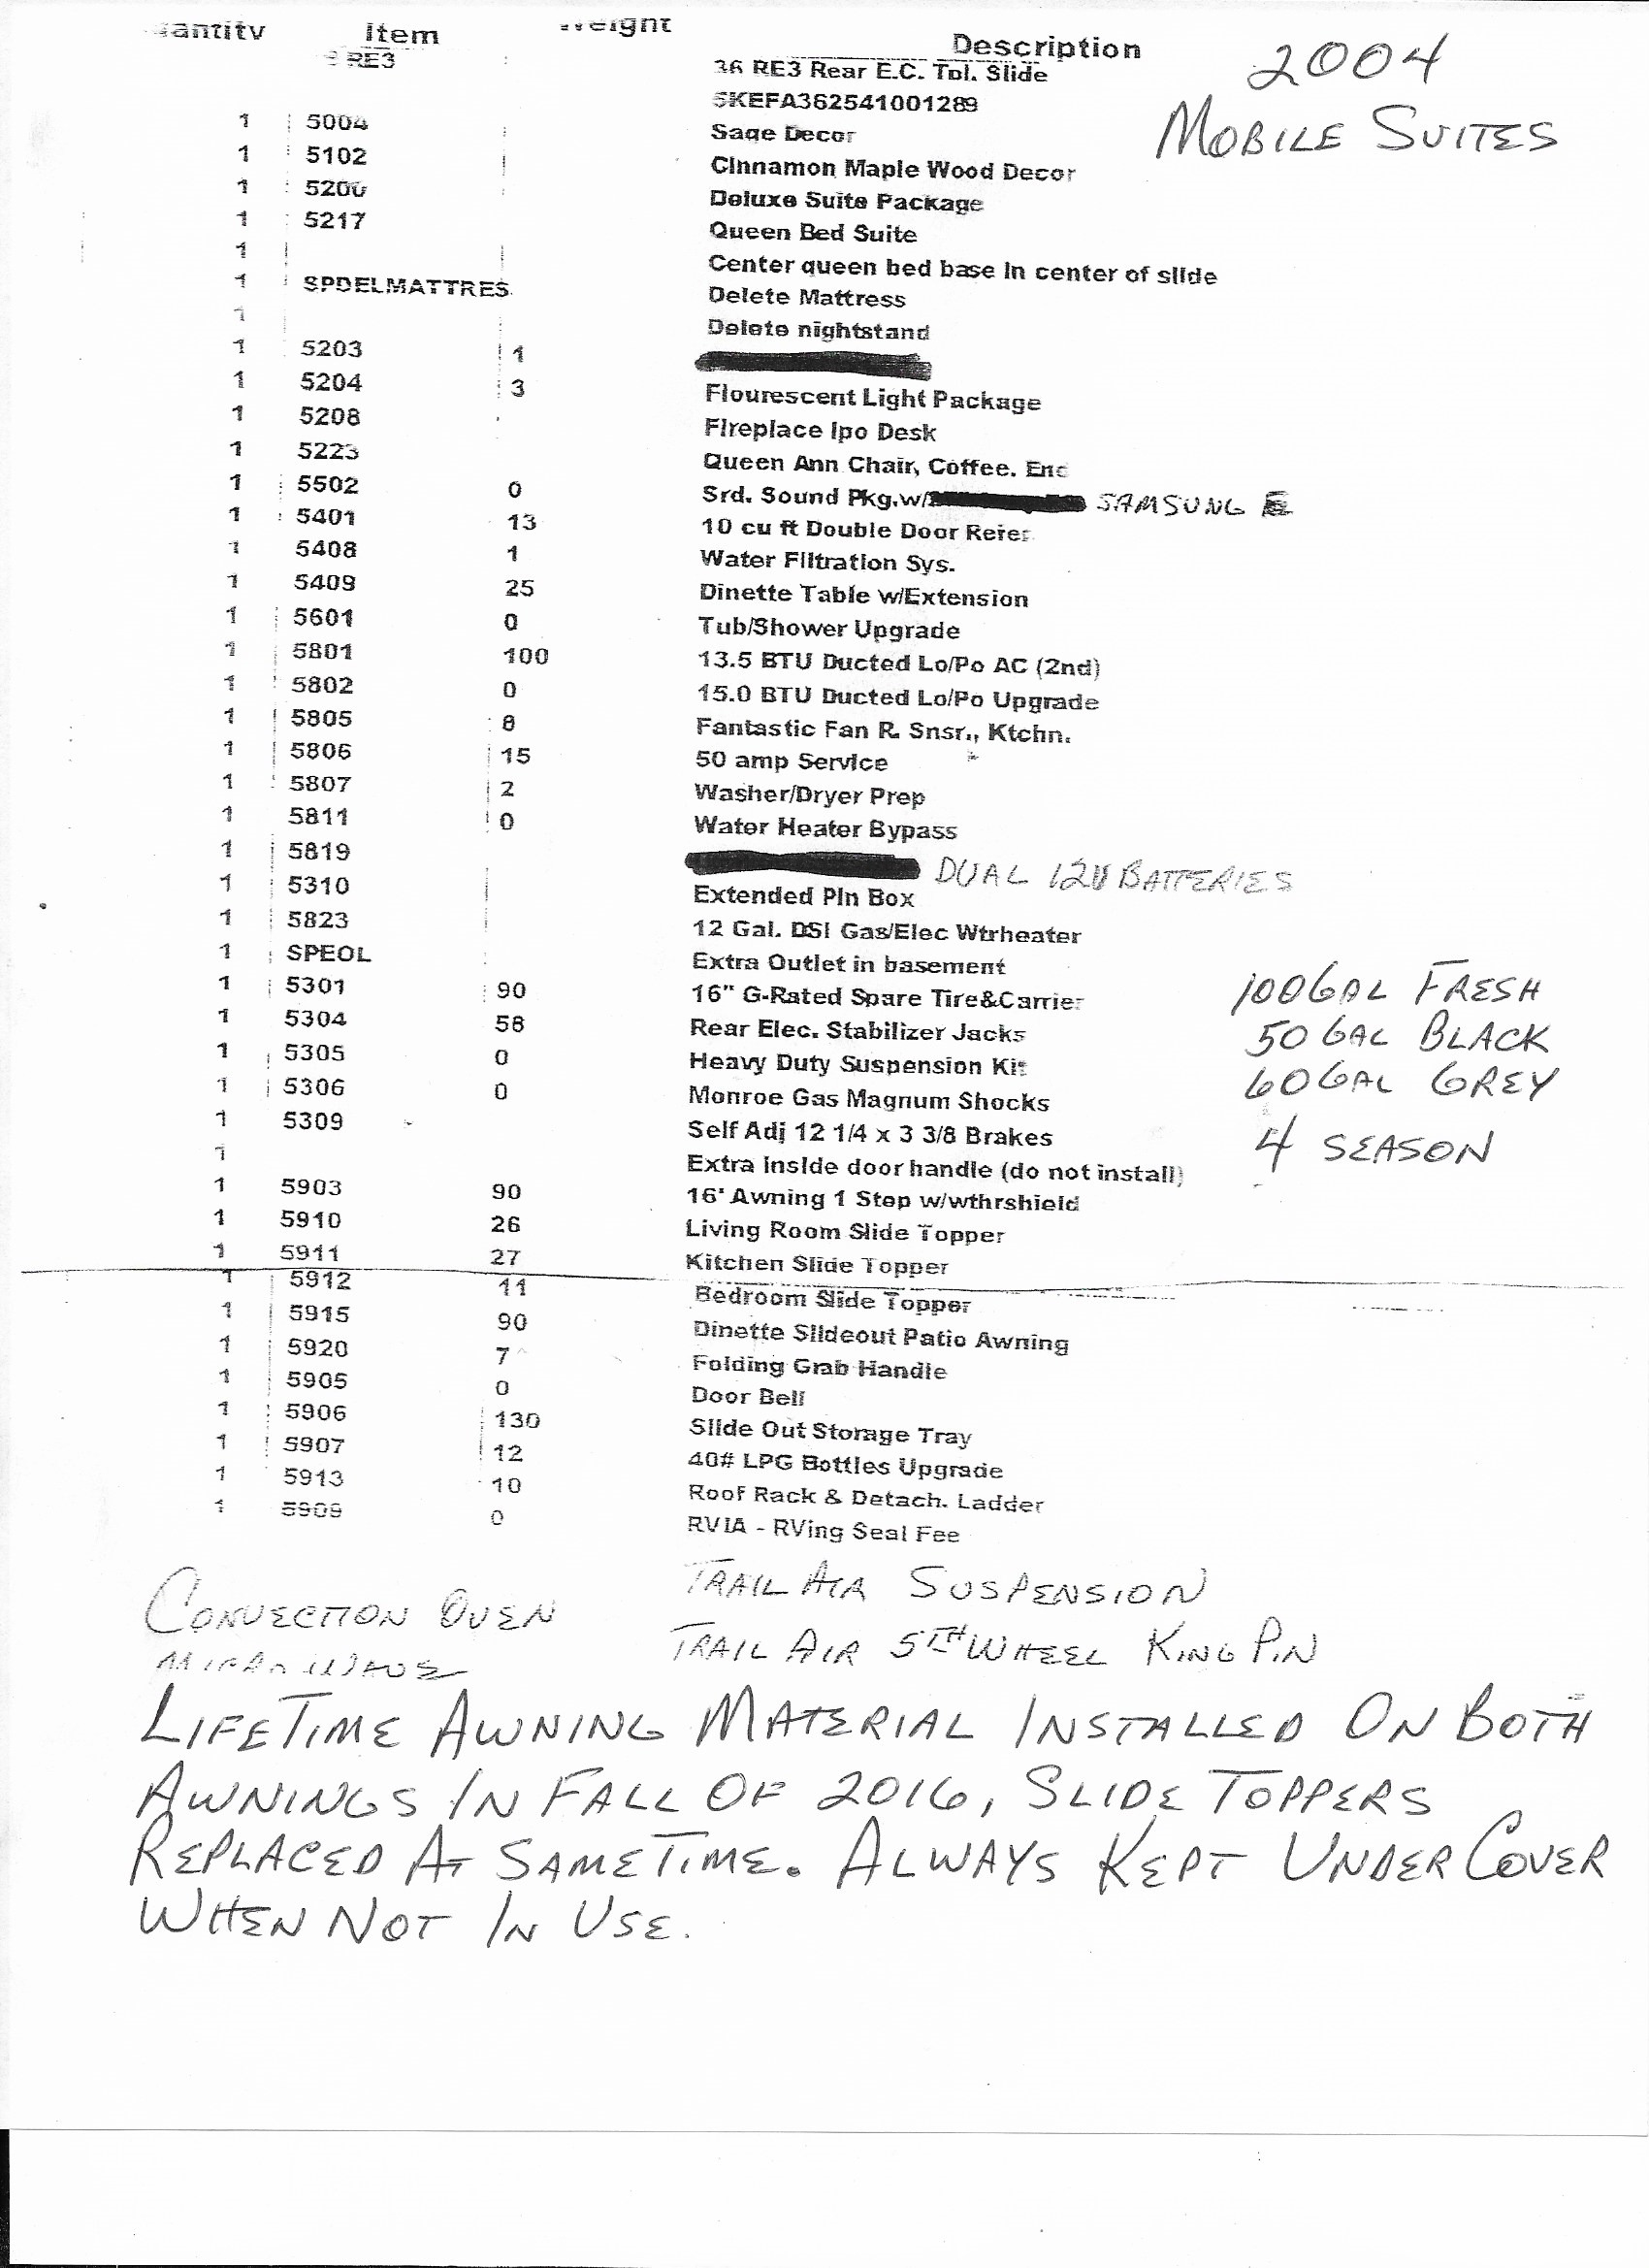 Item Weight Description
RE3 36 RE3 Rear E.C. Tpl. Slide 2004
5KEFA362541001289
1 5004 Sage Decor MOBILE SUITES
1 5102 Cinnamon Maple Wood Decor
1 5200 Deluxe Suite Package
1 5217 Queen Bed Suite
1 Center queen bed base in center of slide
1 SPDELMATTRES Delete Mattress
1 Delete nightstand
1 5203 1
1 5204 3 Flourescent Light Package
1 5208 Fireplace Ipo Desk
1 5223 Queen Ann Chair, Coffee. End
1 5502 0 Srd. Sound Pkg.w/ SAMSUNG
1 5401 13 10 cu ft Double Door Refer
1 5408 1 Water Filtration Sys.
1 5409 25 Dinette Table w/Extension
1 5601 0 Tub/Shower Upgrade
1 5801 100 13.5 BTU Ducted Lo/Po AC (2nd)
1 5802 0 15.0 BTU Ducted Lo/Po Upgrade
1 5805 8 Fantastic Fan R. Snsr., Ktchn.
1 5806 15 50 amp Service
1 5807 2 Washer/Dryer Prep
1 5811 0 Water Heater Bypass
1 5819 DUAL 12V BATTERIES
1 5310 Extended Pin Box
1 5823 12 Gal. DSI Gas/Elec Wtrheater
1 SPEOL Extra Outlet in basement
1 5301 90 16" G-Rated Spare Tire&Carrier 100 GAL FRESH
1 5304 58 Rear Elec. Stabilizer Jacks 50 GAL BLACK
1 5305 0 Heavy Duty Suspension Kit 60 GAL GREY
1 5306 0 Monroe Gas Magnum Shocks
1 5309 Self Adj 12 1/4 x 3 3/8 Brakes 4 SEASON
1 Extra inside door handle (do not install)
1 5903 90 16' Awning 1 Step w/wthrshield
1 5910 26 Living Room Slide Topper
1 5911 27 Kitchen Slide Topper
1 5912 11 Bedroom Slide Topper
1 5915 90 Dinette Slideout Patio Awning
1 5920 7 Folding Grab Handle
1 5905 0 Door Bell
1 5906 130 Slide Out Storage Tray
1 5907 12 40# LPG Bottles Upgrade
1 5913 10 Roof Rack & Detach. Ladder
1 5909 0 RVIA - RVing Seal Fee
CONVECTION OVEN TRAIL AIR SUSPENSION
MICROWAVE TRAIL AIR 5TH WHEEL KING PIN
LIFETIME AWNING MATERIAL INSTALLED ON BOTH
AWNINGS IN FALL OF 2016, SLIDE TOPPERS
REPLACED AT SAME TIME. ALWAYS KEPT UNDER COVER
WHEN NOT IN USE.